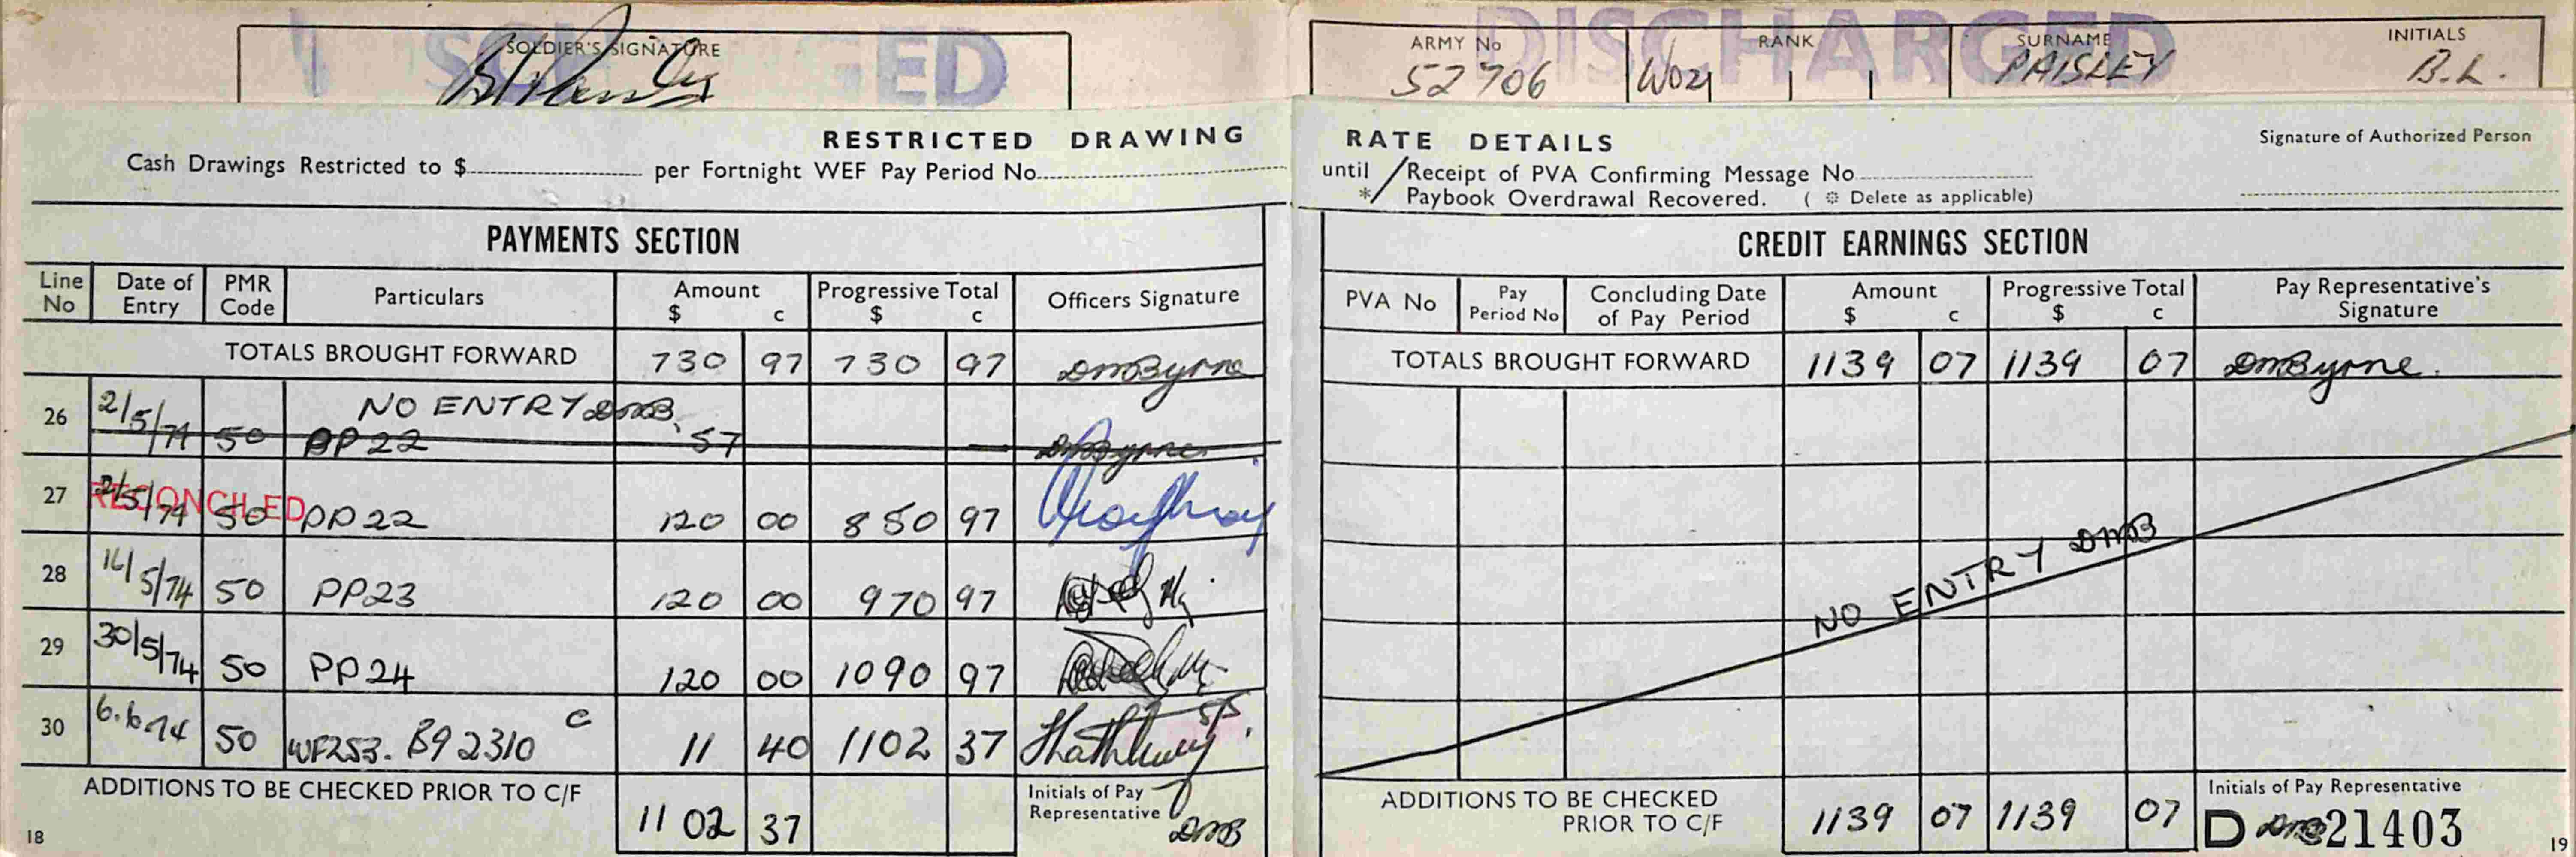 DISCHARGED
SOLDIER'S SIGNATURE
ARMY No RANK SURNAME INITIALS
52706 WO2 PAISLEY B.L.
RESTRICTED DRAWING RATE DETAILS
Signature of Authorized Person
Cash Drawings Restricted to $ per Fortnight WEF Pay Period No. until / Receipt of PVA Confirming Message No.
* / Paybook Overdrawal Recovered. ( * Delete as applicable)
PAYMENTS SECTION
Line No Date of Entry PMR Code Particulars Amount $ c Progressive Total $ c Officers Signature
TOTALS BROUGHT FORWARD 730 97 730 97 DMByrne
26 2/5/74 NO ENTRY DMB
50 PP22 57 DMByrne
27 2/5/74 50 PP22 120 00 850 97
RECONCILED
28 16/5/74 50 PP23 120 00 970 97
29 30/5/74 50 PP24 120 00 1090 97
30 6.6.74 50 WF253. B92310 c 11 40 1102 37
ADDITIONS TO BE CHECKED PRIOR TO C/F 1102 37 Initials of Pay Representative DMB
18
CREDIT EARNINGS SECTION
PVA No Pay Period No Concluding Date of Pay Period Amount $ c Progressive Total $ c Pay Representative's Signature
TOTALS BROUGHT FORWARD 1139 07 1139 07 DMByrne.
NO ENTRY DMB
ADDITIONS TO BE CHECKED PRIOR TO C/F 1139 07 1139 07 Initials of Pay Representative
D 21403
19